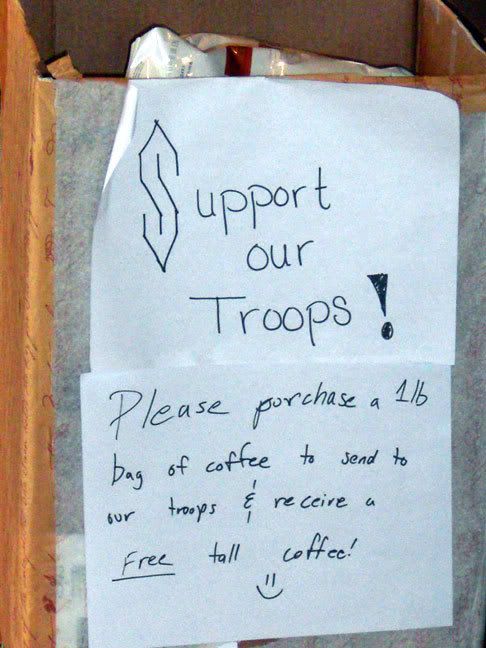 Support
our
Troops!
Please purchase a 1lb
bag of coffee to send to
our troops & receive a
Free tall coffee!